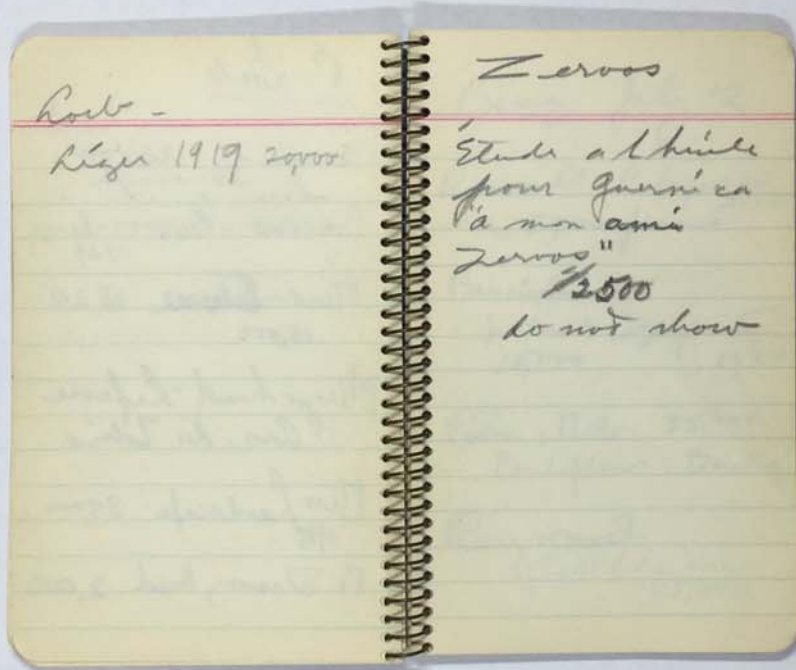 Loeb -
Léger 1919 20,000
Zervos
Étude a l huile
pour Guernica
"à mon ami
Zervos"
$2500
do not show